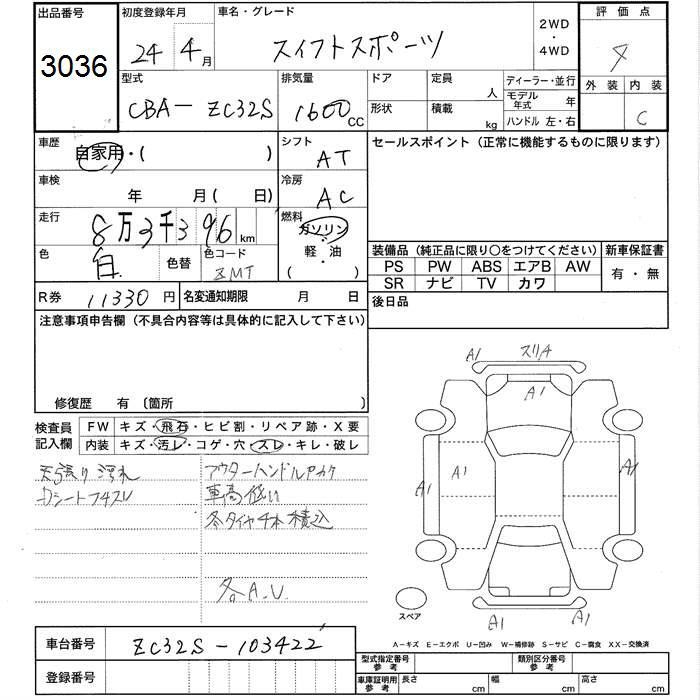 出品番号
3036
初度登録年月
24年4月
車名・グレード
スイフトスポーツ
2WD
・
4WD
評価点
4
外装 内装
C
型式
CBA-ZC32S
排気量
1600cc
ドア
形状
定員
人
積載
kg
ディーラー・並行
モデル年式 年
ハンドル 左・右
車歴
自家用・( )
シフト
AT
セールスポイント(正常に機能するものに限ります)
車検
年 月(日)
冷房
AC
走行
8万3千396km
燃料
ガソリン
・
軽・油
( )
色
白
色替
色コード
ZMT
装備品(純正品に限り〇をつけてください)
新車保証書
PS PW ABS エアB AW
有・無
SR ナビ TV カワ
R券 11330円
名変通知期限 月 日
後日品
注意事項申告欄(不具合内容等は具体的に記入して下さい)
修復歴 有 〔箇所 〕
検査員記入欄
FW キズ・飛石・ヒビ割・リペア跡・X要
内装 キズ・汚レ・コゲ・穴・スレ・キレ・破レ
天張り汚れ
Dシートフチスレ
アウターハンドルアカケ
車高低い
冬タイヤ4本積込
各A.U.
A1 スリA
A1
A1 A1 A1
A1 A1
スペア
A-キズ E-エクボ U-凹み W-補修跡 S-サビ C-腐食 XX-交換済
車台番号
ZC32S-103422
登録番号
型式指定番号参考
類別区分番号参考
車庫証明用参考
長さ cm
幅 cm
高さ cm